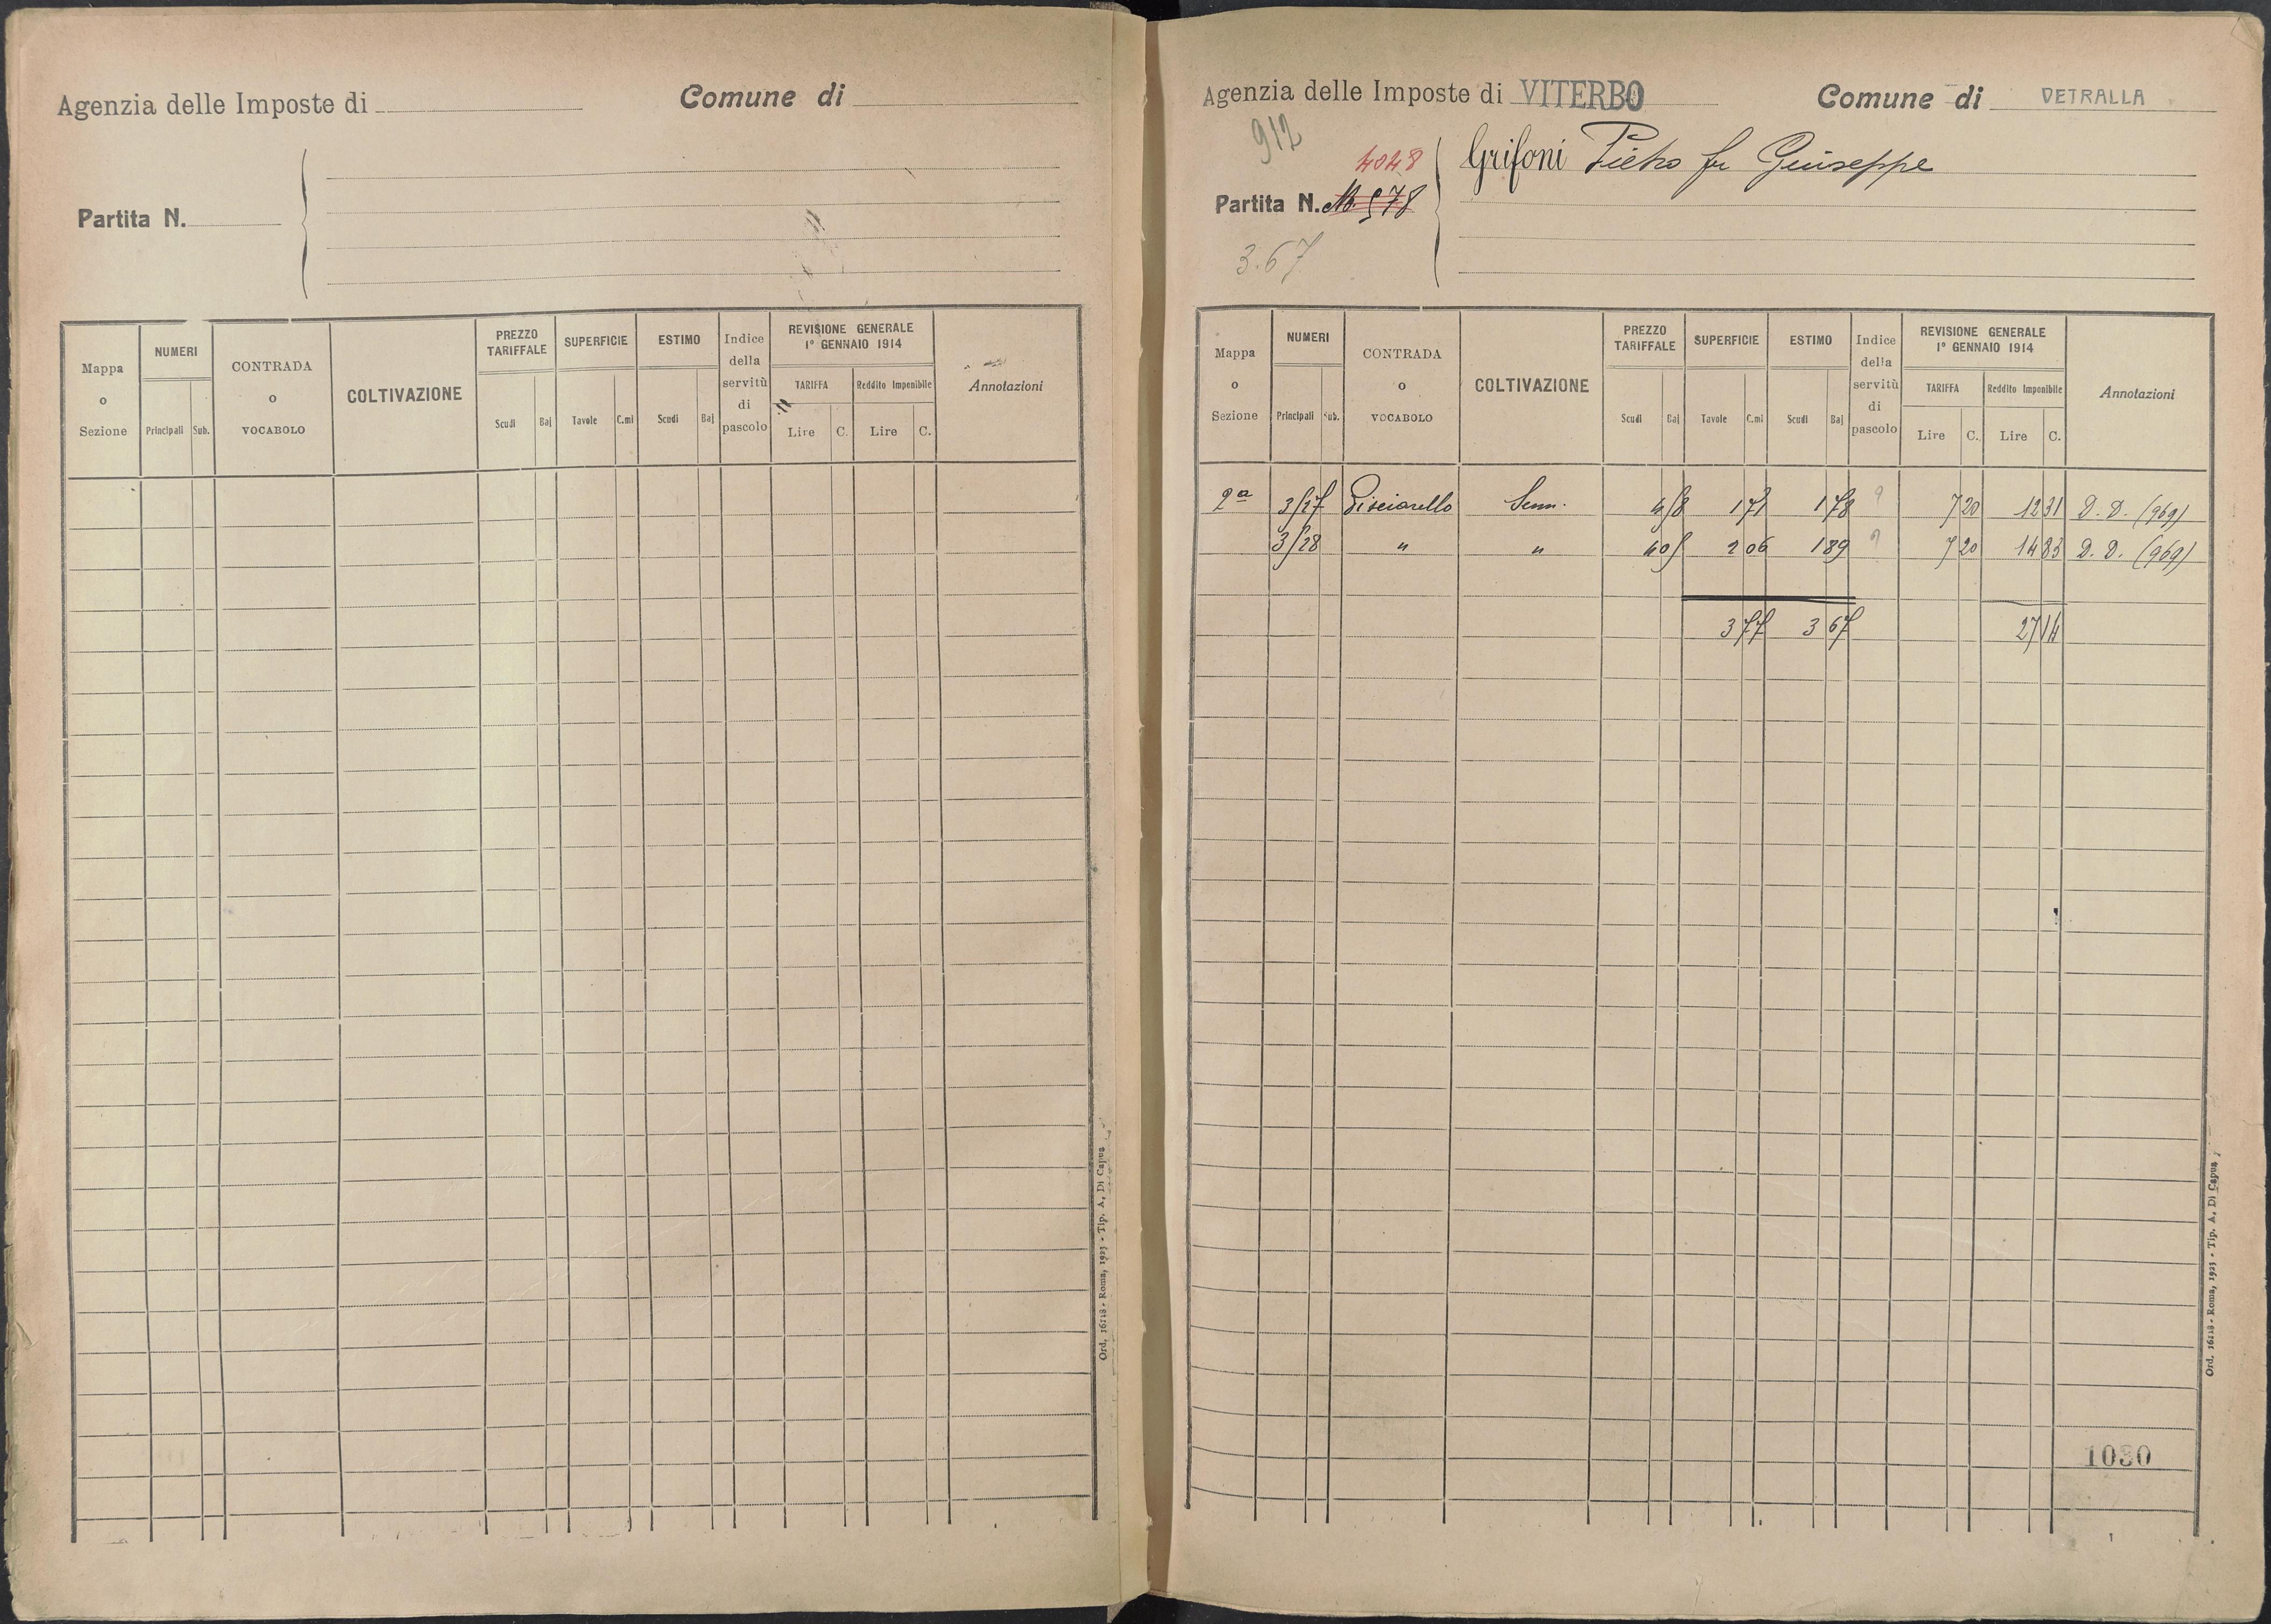 Agenzia delle Imposte di
Comune di
Partita N.
Mappa o Sezione
NUMERI
Principali Sub.
CONTRADA o VOCABOLO
COLTIVAZIONE
PREZZO TARIFFALE
Scudi Baj
SUPERFICIE
Tavole C.mi
ESTIMO
Scudi Baj
Indice della servitù di pascolo
REVISIONE GENERALE 1° GENNAIO 1914
TARIFFA
Lire C.
Reddito Imponibile
Lire C.
Annotazioni
Ord. 16118 - Roma, 1923 - Tip. A. Di Capua
Agenzia delle Imposte di VITERBO
Comune di VETRALLA
912
4048
Partita N.
3.67
Grifoni Pietro fu Giuseppe
Mappa o Sezione
NUMERI
Principali Sub.
CONTRADA o VOCABOLO
COLTIVAZIONE
PREZZO TARIFFALE
Scudi Baj
SUPERFICIE
Tavole C.mi
ESTIMO
Scudi Baj
Indice della servitù di pascolo
REVISIONE GENERALE 1° GENNAIO 1914
TARIFFA
Lire C.
Reddito Imponibile
Lire C.
Annotazioni
2ª 3/27 Pisciarello Sem. 1 71 1 78 7 20 12 31 D. D. (969)
3/28 " " 2 06 1 89 7 20 14 83 D. D. (969)
3 77 3 67 27 14
1030
Ord. 16118 - Roma, 1923 - Tip. A. Di Capua